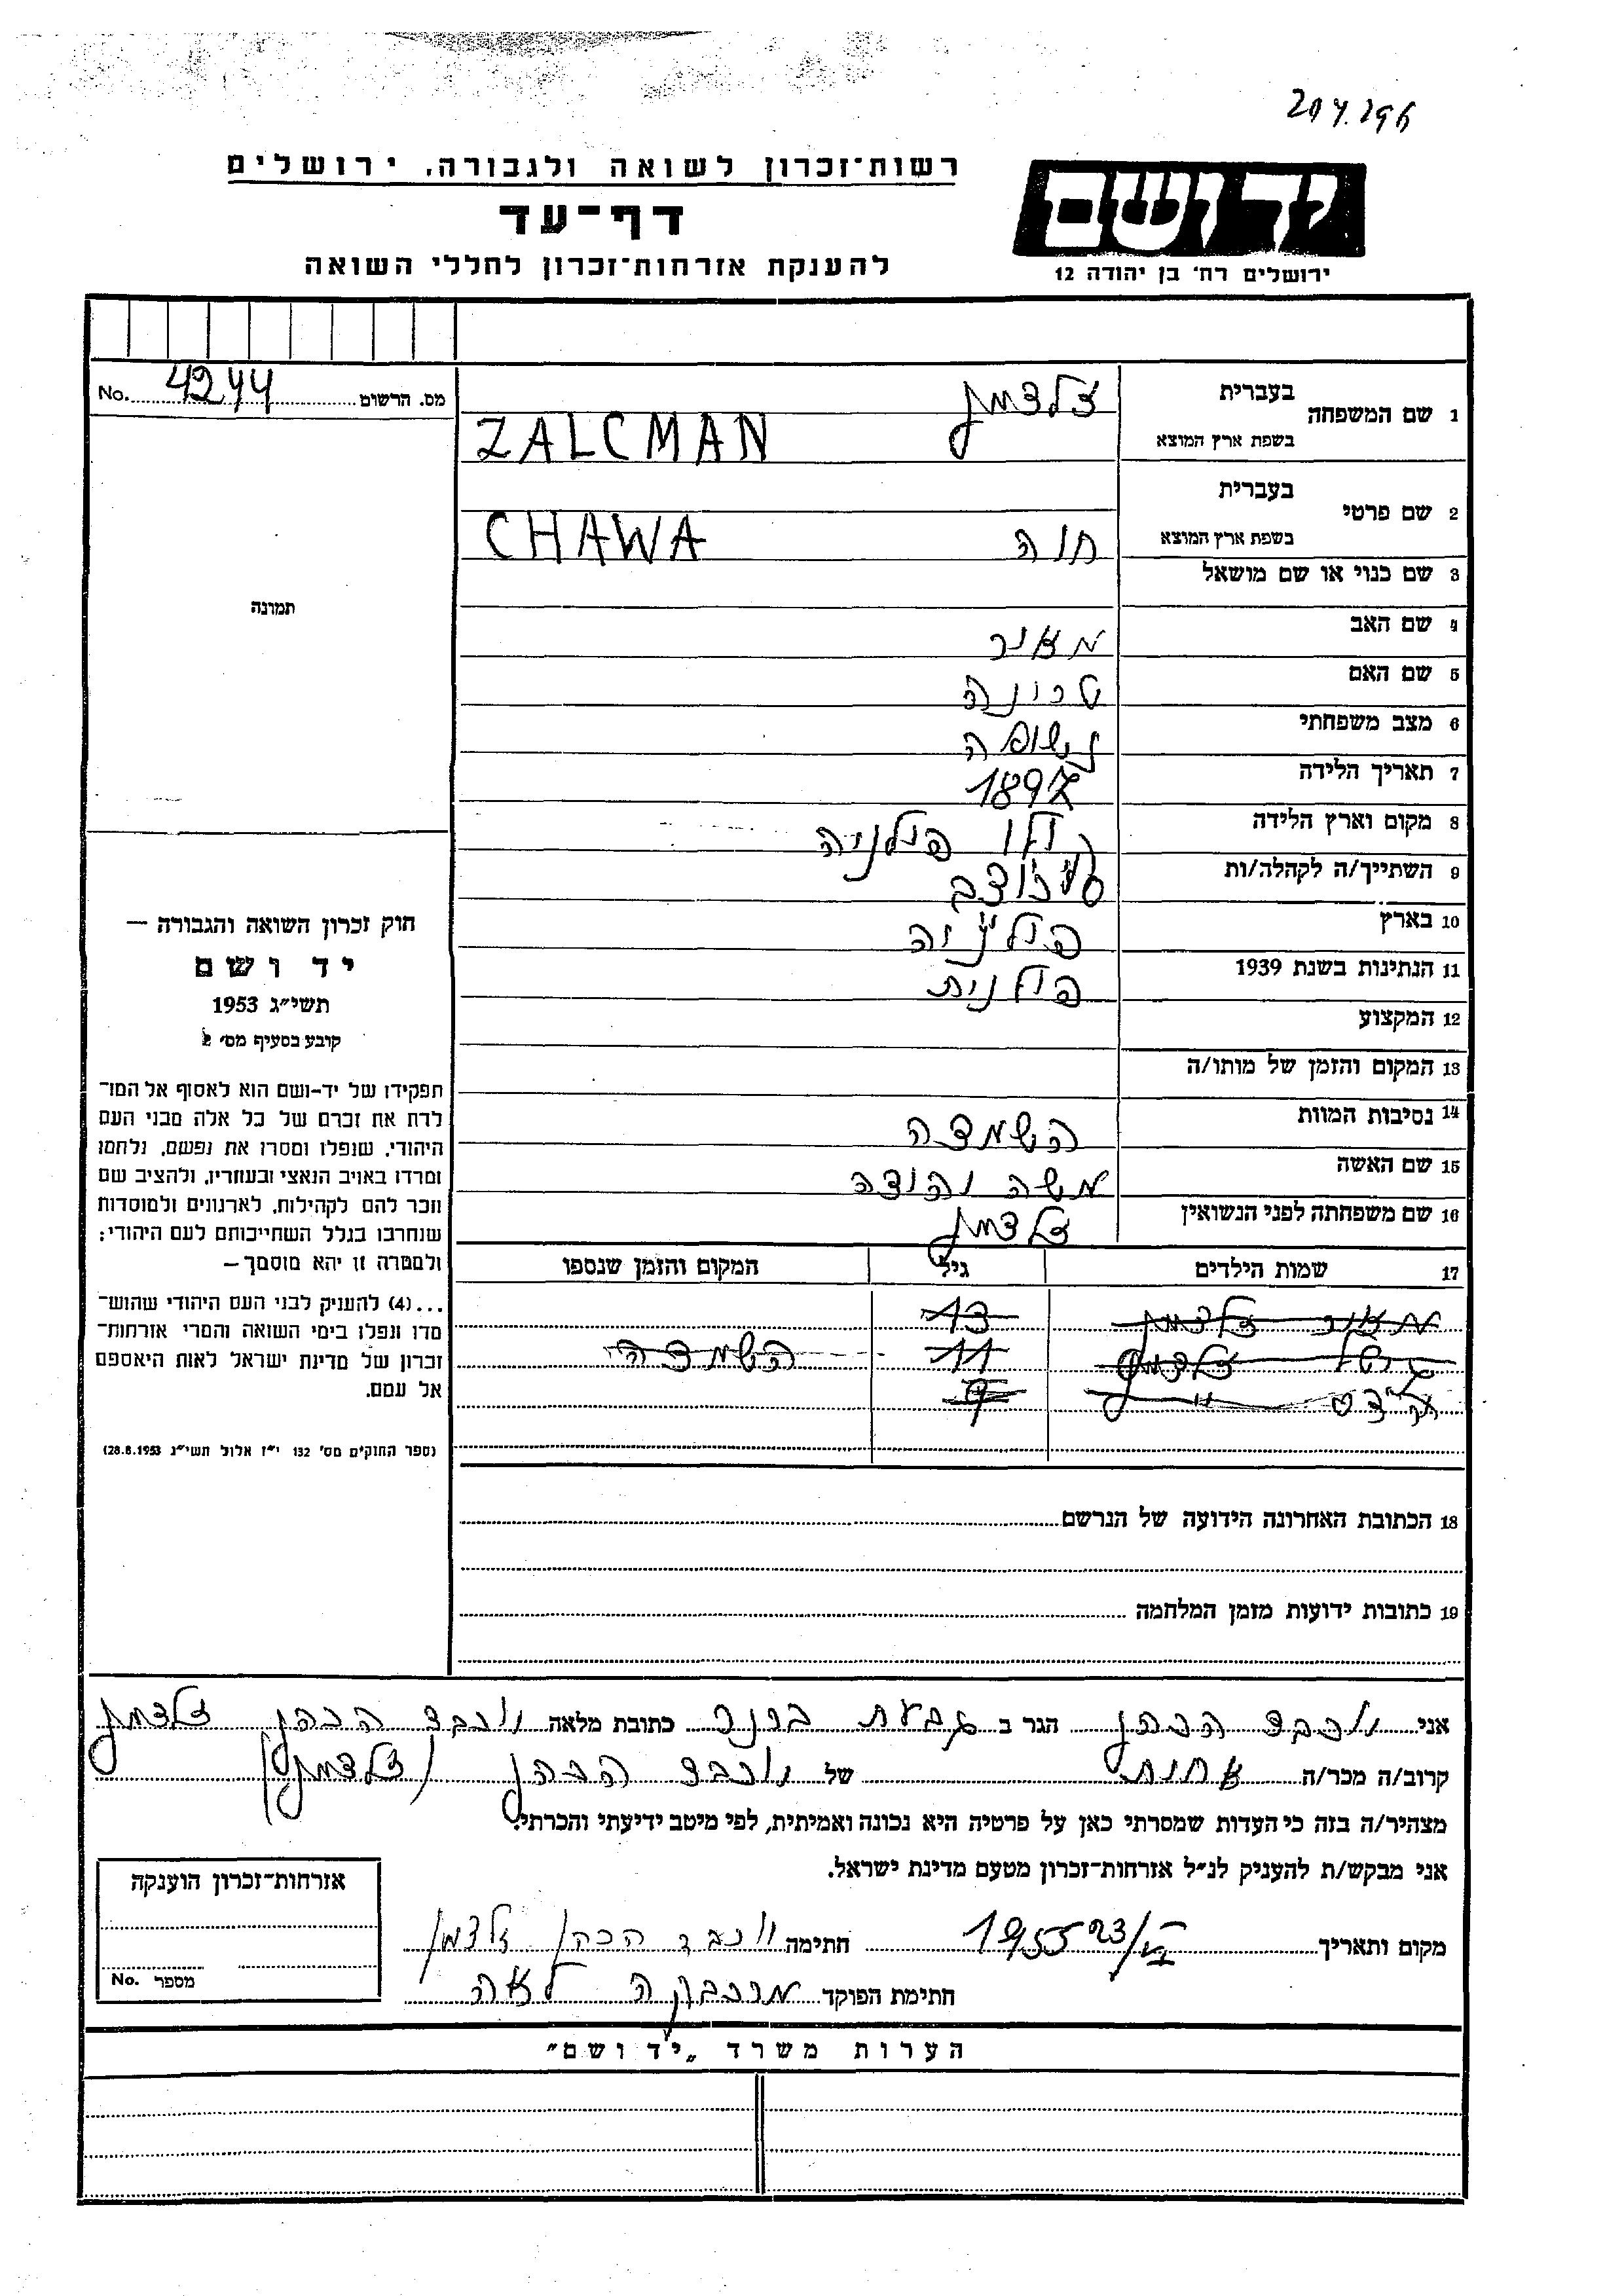 204.296
רשות־זכרון לשואה ולגבורה, ירושלים
דף־עד
להענקת אזרחות־זכרון לחללי השואה
יד ושם
ירושלים רח' בן יהודה 12
מס. הרשום 4244 No.
1 שם המשפחה
בעברית צלצמן
בשפת ארץ המוצא ZALCMAN
2 שם פרטי
בעברית
בשפת ארץ המוצא חוה CHAWA
3 שם כנוי או שם מושאל
4 שם האב מאיר
5 שם האם
6 מצב משפחתי נשואה
7 תאריך הלידה 1897
8 מקום וארץ הלידה פולניה
9 השתייך/ה לקהלה/ות
10 בארץ פולניה
11 הנתינות בשנת 1939 פולנית
12 המקצוע
13 המקום והזמן של מותו/ה
14 נסיבות המוות השמדה
15 שם האשה משה יהודה
16 שם משפחתה לפני הנשואין צלצמן
17 שמות הילדים גיל המקום והזמן שנספו
מאיר צלצמן 13
צלצמן 11 השמדה
9
18 הכתובת האחרונה הידועה של הנרשם
19 כתובות ידועות מזמן המלחמה
תמונה
חוק זכרון השואה והגבורה —
יד ושם
תשי״ג 1953
קובע בסעיף מס' 2
תפקידו של יד-ושם הוא לאסוף אל המו־
לדת את זכרם של כל אלה מבני העם
היהודי, שנפלו ומסרו את נפשם, נלחמו
ומרדו באויב הנאצי ובעוזריו, ולהציב שם
וזכר להם לקהילות, לארגונים ולמוסדות
שנחרבו בגלל השתייכותם לעם היהודי;
ולמטרה זו יהא מוסמך —
...(4) להעניק לבני העם היהודי שהוש־
מדו ונפלו בימי השואה והמרי אזרחות־
זכרון של מדינת ישראל לאות היאספם
אל עמם.
(ספר החוקים מס' 132 י״ז אלול תשי״ג 28.8.1953)
אני יוכבד הכהן הגר ב גבעת ברנר כתובת מלאה יוכבד הכהן צלצמן
קרוב/ה מכר/ה אחות של יוכבד הכהן (צלצמן)
מצהיר/ה בזה כי העדות שמסרתי כאן על פרטיה היא נכונה ואמיתית, לפי מיטב ידיעתי והכרתי.
אני מבקש/ת להעניק לנ״ל אזרחות־זכרון מטעם מדינת ישראל.
מקום ותאריך 23/VI 1955 חתימה יוכבד הכהן צלצמן
חתימת הפוקד לאה
אזרחות־זכרון הוענקה
מספר No.
הערות משרד „יד ושם״